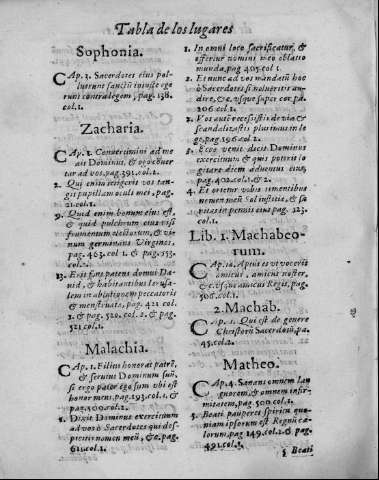 Tabla de los lugares
Sophonia.
CAp. 3. Sacerdotes eius pol-
luerunt sanctũ iniuste ege
runt contra legem, pag. 138.
col. 1.
Zacharia.
CAp. 1. Convertimini ad me
ait Dominus, & ego conver
tar ad vos, pag. 391. col. 1.
2. Qui enim tetigerit vos tan-
git pupillam oculi mei, pag.
21. col. 1.
9. Quid enim bonum eius est,
& quid pulchrum eius nisi
frumentum electorum, & vi-
num germinans Virgines,
pag. 463. col. 1. & 153.
col. 2.
13. Erit fons patens domui Da-
uid, & habitantibus Ierusa-
lem in ablutionem peccatoris
& menstruatę, pag. 421. col.
1. & pag. 520. col. 2. & pag.
521. col. 1.
Malachia.
CAp. 1. Filius honorat patrẽ,
& seruus Dominum suũ,
si ergo pater ego sum vbi est
honor meus, pag. 193. col. 1. &
pag. 300. col. 2.
1. Dixit Dominus exercituum
ad vos ò Sacerdotes qui des-
picitis nomen meũ, &c. pag.
611. col. 1.
1. In omni loco sacrificatur, &
offertur nomini meo oblatio
munda, pag. 405. col. 1.
2. Et nunc ad vos mandatũ hoc
ò Sacerdotes si nolueritis au-
dire, &c. vsque super cor, pa.
106. col. 1.
2. Vos autẽ recessistis de via &
scandalizastis plurimus in le
ge, pag. 196. col. 2.
3. Ecce venit dicit Dominus
exercituum & quis poterit co
gitare diem aduentus eius,
pag. 402. col. 1. & 2.
4. Et orietur vobis timentibus
nomen meũ Sol iustitię, & sa
nitas in pennis eius pag. 323.
col. 1.
Lib. 1. Machabeo-
rum.
CAp. 10. Aptus es vt voceris
amicus, amicus noster,
& c. vsque amicus Regis, pag.
508. col. 1.
2. Machab.
CAp. 1. Qui est de genere
Christorũ Sacerdotũ, pa.
45. col. 2.
Matheo.
CAp. 4. Sanans omnem lan
guorem, & omnem infir-
mitatem, pag. 500. col. 1.
5. Beati pauperes spiritu quo
niam ipsorum est Regnũ cæ-
lorum, pag. 149. col. 2. & pag.
491. col. 2.
5 Beati